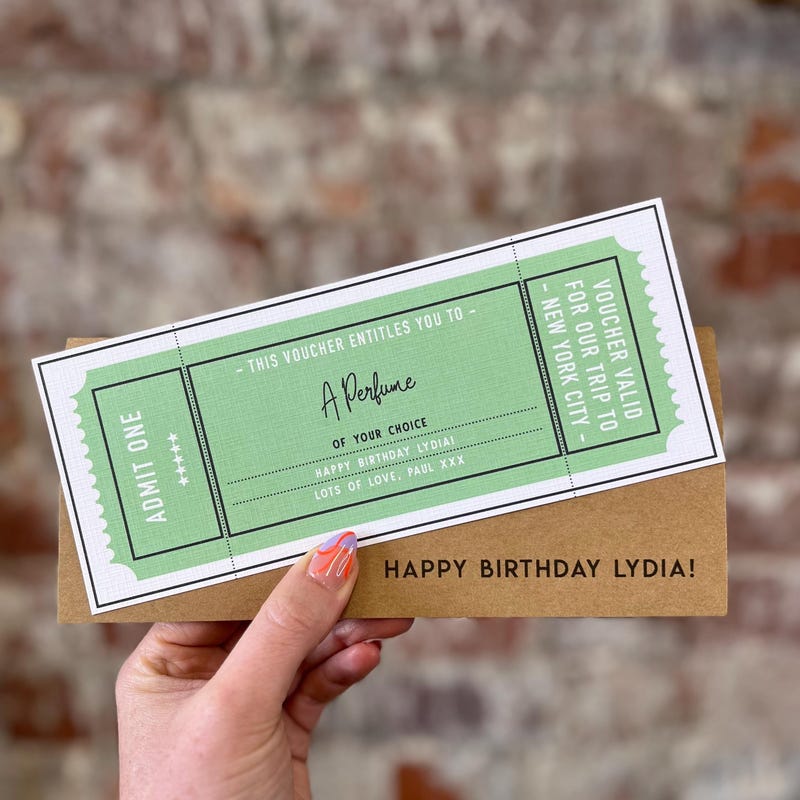 ADMIT ONE
- THIS VOUCHER ENTITLES YOU TO -
A Perfume
OF YOUR CHOICE
HAPPY BIRTHDAY LYDIA!
LOTS OF LOVE, PAUL XXX
VOUCHER VALID
FOR OUR TRIP TO
- NEW YORK CITY -
HAPPY BIRTHDAY LYDIA!